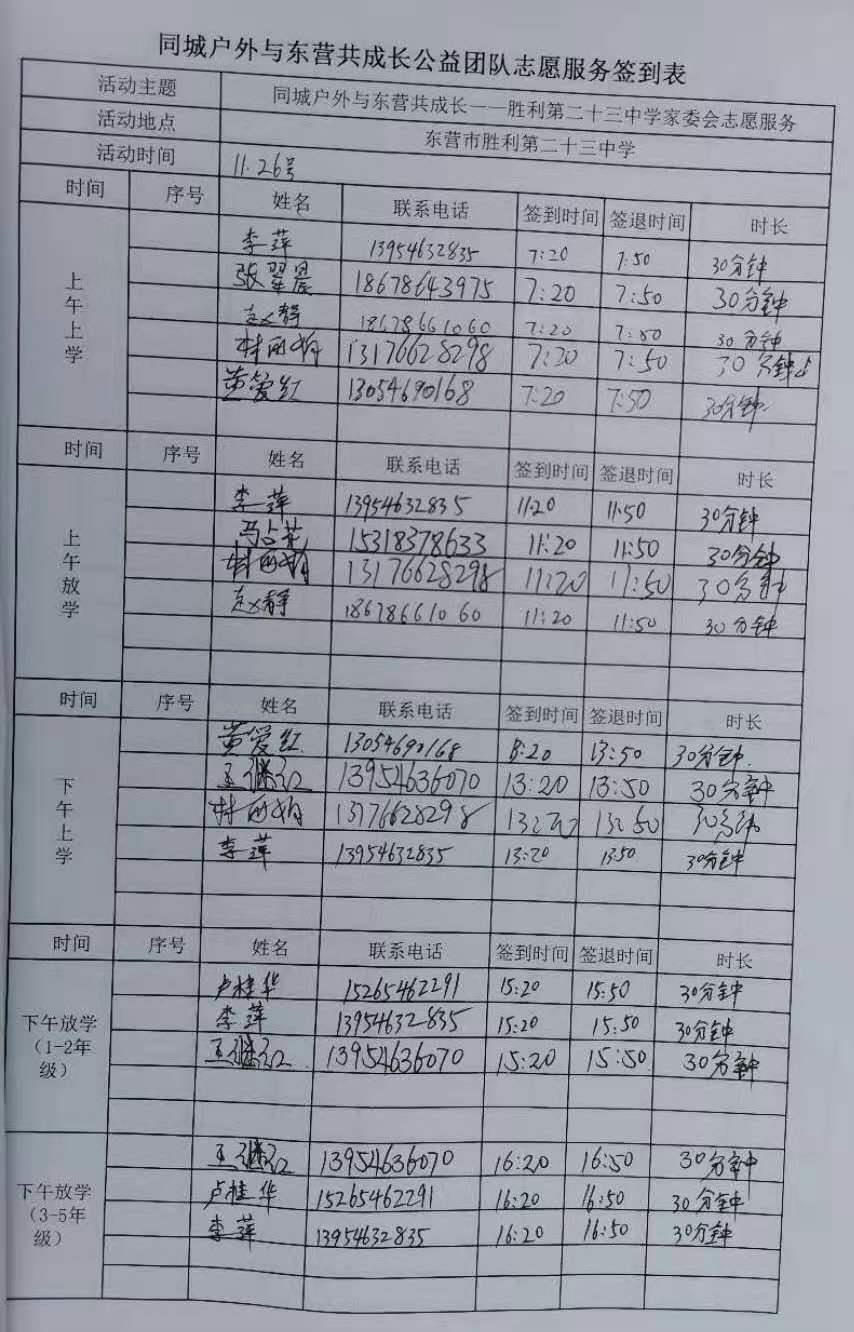 同城户外与东营共成长公益团队志愿服务签到表
活动主题 同城户外与东营共成长——胜利第二十三中学家委会志愿服务
活动地点 东营市胜利第二十三中学
活动时间 11.26号
时间 序号 姓名 联系电话 签到时间 签退时间 时长
上午上学
李萍 13954632835 7:20 7:50 30分钟
张翠晨 18678643975 7:20 7:50 30分钟
赵静 18678661060 7:20 7:50 30分钟
13176628298 7:20 7:50 30分钟
黄爱红 13054690168 7:20 7:50 30分钟
时间 序号 姓名 联系电话 签到时间 签退时间 时长
上午放学
李萍 13954632835 11:20 11:50 30分钟
马占花 15318378633 11:20 11:50 30分钟
13176628298 11:20 11:50 30分钟
赵静 18678661060 11:20 11:50 30分钟
时间 序号 姓名 联系电话 签到时间 签退时间 时长
下午上学
黄爱红 13054690168 8:20 13:50 30分钟
王继红 13954636070 13:20 13:50 30分钟
13176628298 13:20 13:50 30分钟
李萍 13954632835 13:20 13:50 30分钟
时间 序号 姓名 联系电话 签到时间 签退时间 时长
下午放学
（1-2年
级）
卢桂华 15265462291 15:20 15:50 30分钟
李萍 13954632835 15:20 15:50 30分钟
王继红 13954636070 15:20 15:50 30分钟
下午放学
（3-5年
级）
王继红 13954636070 16:20 16:50 30分钟
卢桂华 15265462291 16:20 16:50 30分钟
李萍 13954632835 16:20 16:50 30分钟